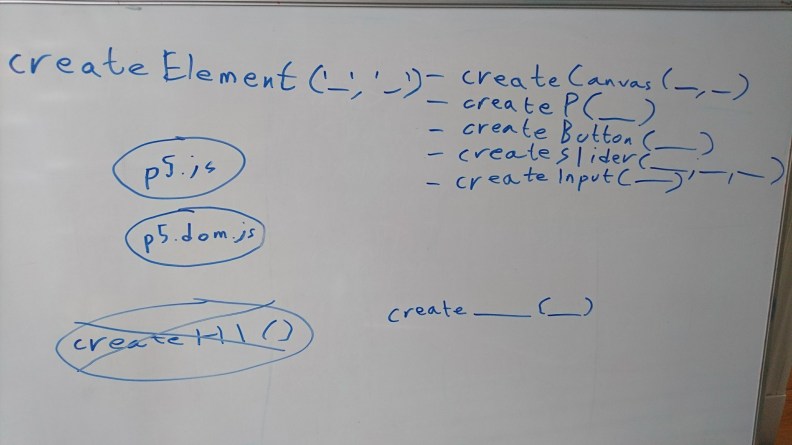 createElement('_', '_') - createCanvas(_, _)
- createP(__)
- createButton(___)
- createSlider(__, _, _)
- createInput(__)
p5.js
p5.dom.js
create ___ (_)
createH1()